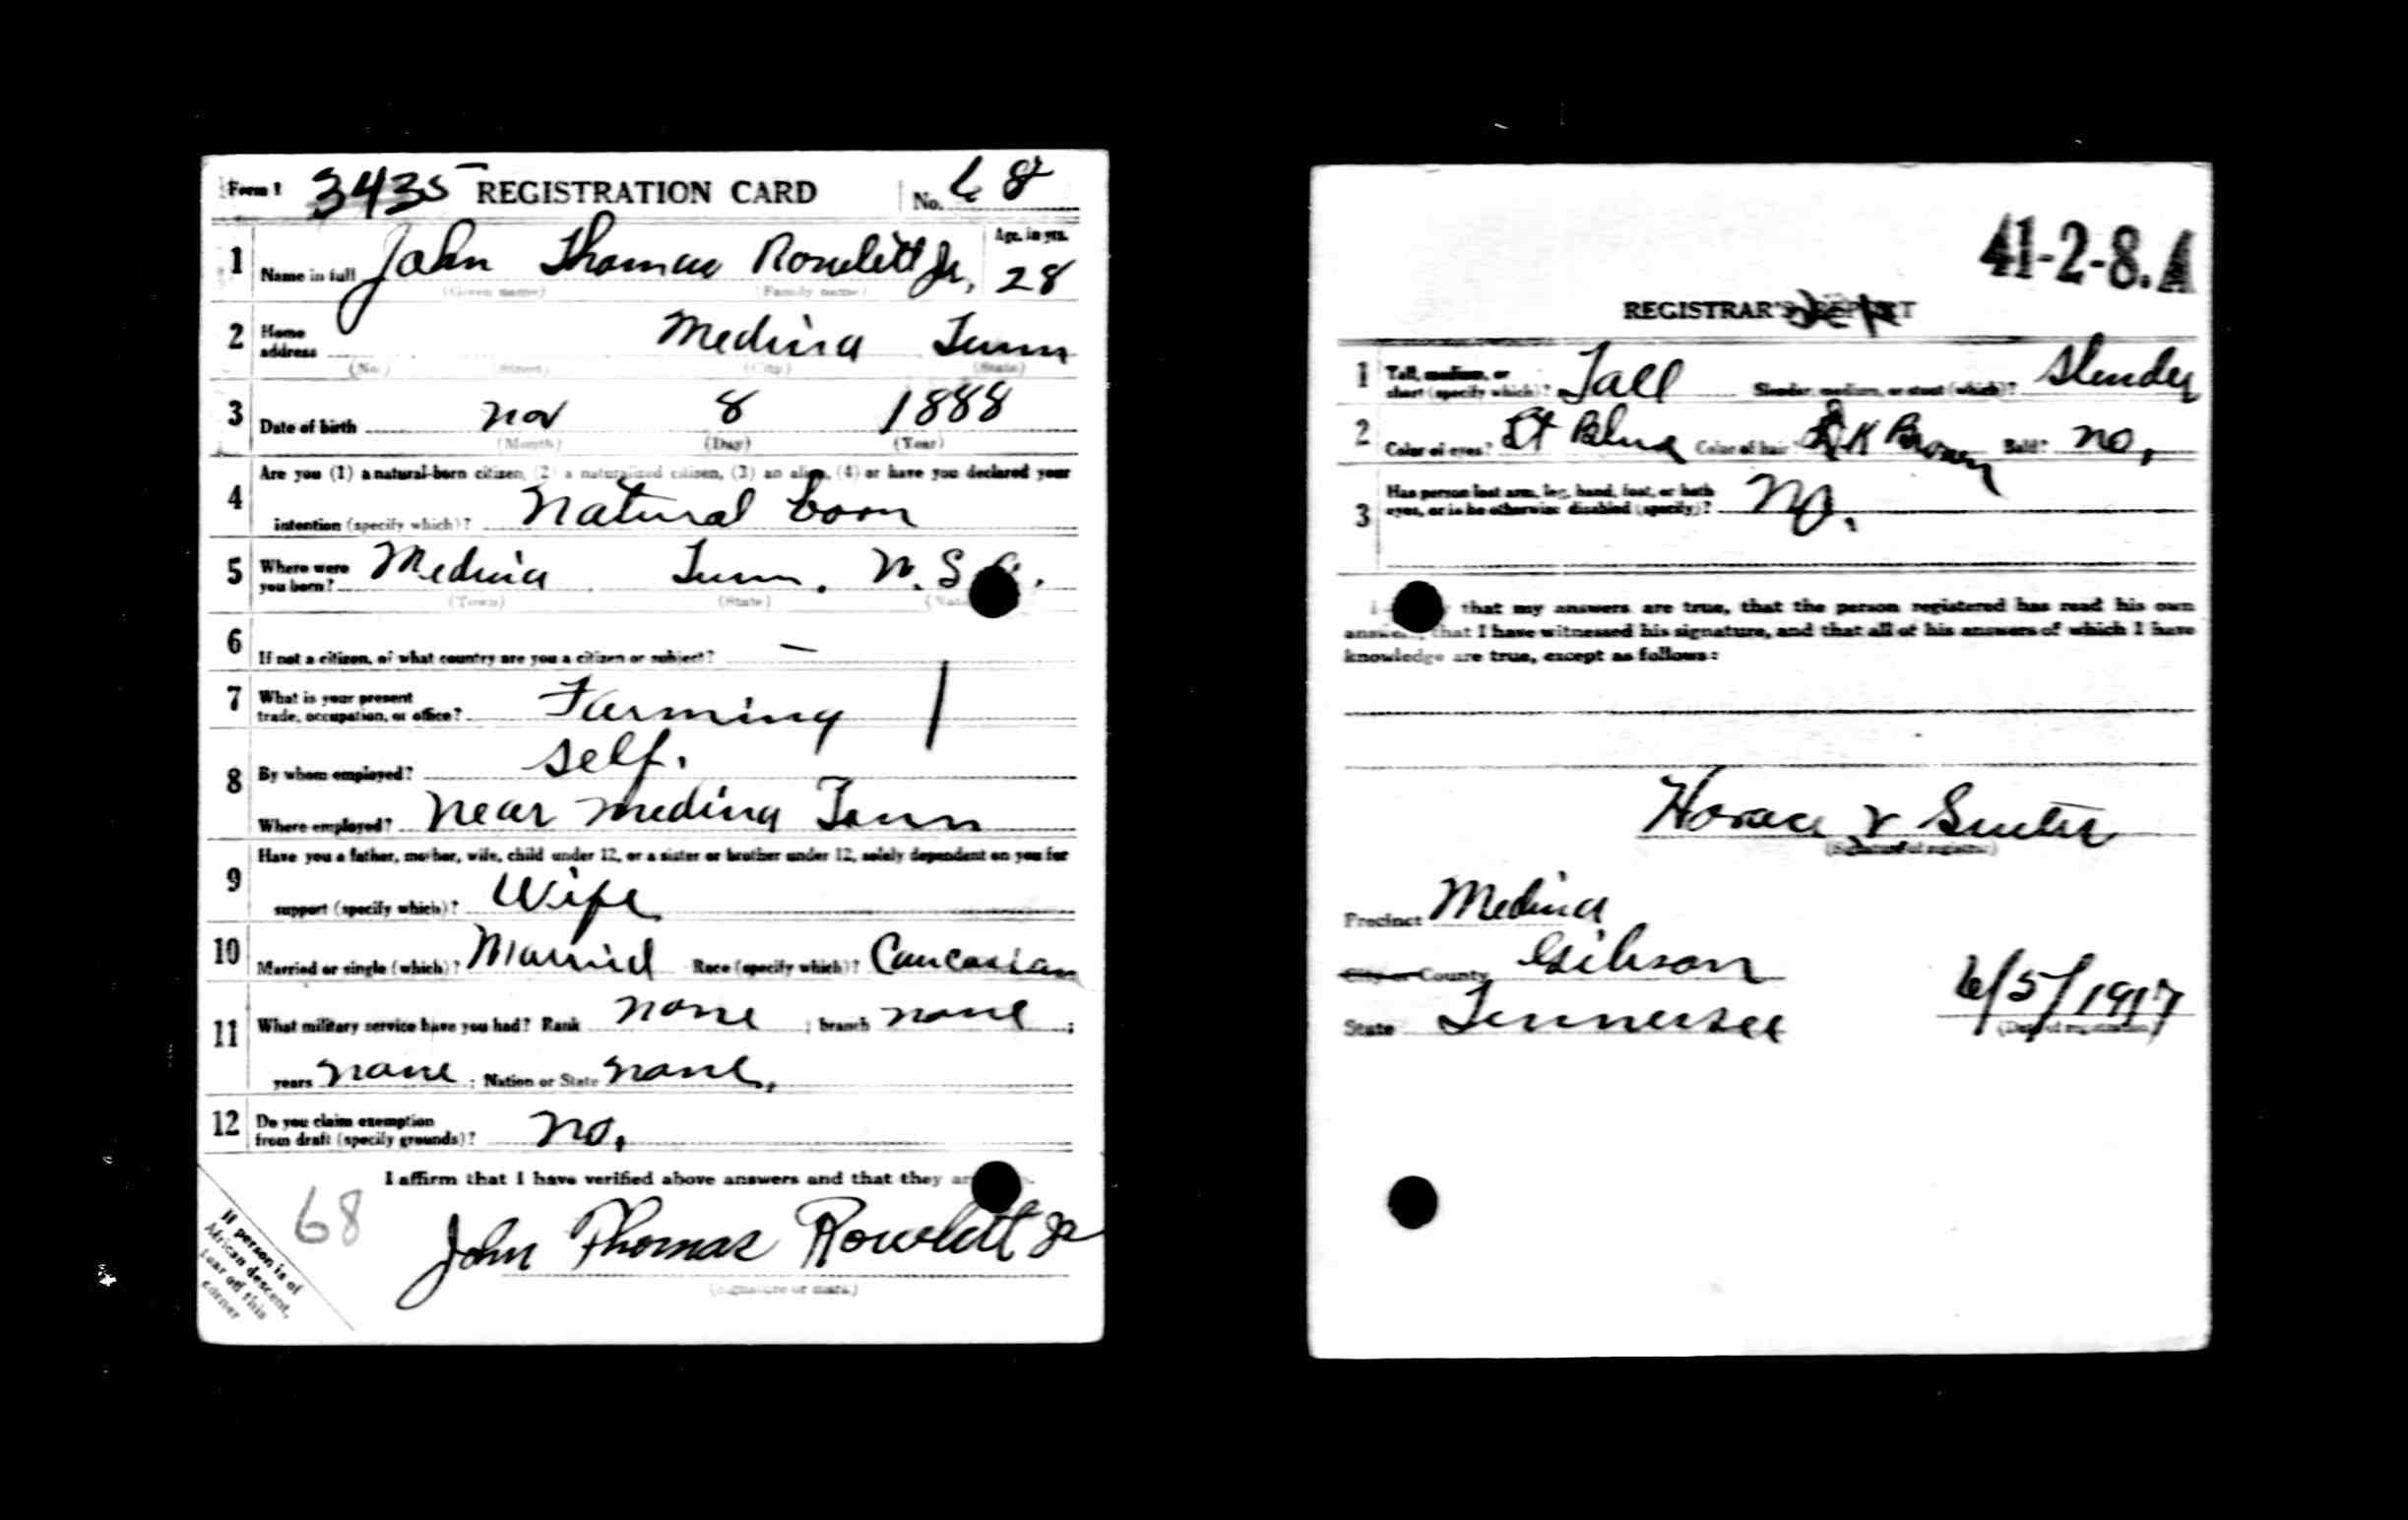 Form 1 3435 REGISTRATION CARD No. 68
1 Name in full John Thomas Rowlett Jr. Age, in yrs. 28
(Given name) (Family name)
2 Home address Medina Tenn
(No.) (Street) (City) (State)
3 Date of birth Nov 8 1888
(Month) (Day) (Year)
4 Are you (1) a natural-born citizen, (2) a naturalized citizen, (3) an alien, (4) or have you declared your
intention (specify which)? Natural born
5 Where were you born? Medina Tenn. U.S.A.
(Town) (State)
6 If not a citizen, of what country are you a citizen or subject? –
7 What is your present trade, occupation, or office? Farming
8 By whom employed? self.
Where employed? near medina Tenn
9 Have you a father, mother, wife, child under 12, or a sister or brother under 12, solely dependent on you for
support (specify which)? Wife
10 Married or single (which)? Married Race (specify which)? Caucasian
11 What military service have you had? Rank none ; branch none ;
years none ; Nation or State none,
12 Do you claim exemption from draft (specify grounds)? no.
I affirm that I have verified above answers and that they
68
John Thomas Rowlett Jr
(Signature or mark)
If person is of
African descent,
tear off this
corner
41-2-8.A
REGISTRAR'S REPORT
1 Tall, medium, or short (specify which)? Tall Slender, medium, or stout (which)? Slender
2 Color of eyes? Lt Blue Color of hair? DK Brown Bald? no,
3 Has person lost arm, leg, hand, foot, or both eyes, or is he otherwise disabled (specify)? No.
I that my answers are true, that the person registered has read his own
that I have witnessed his signature, and that all of his answers of which I have
knowledge are true, except as follows:
Horace
(Signature of registrar)
Precinct Medina
City or County Gibson
State Tennessee 6/5/1917
(Date of registration)